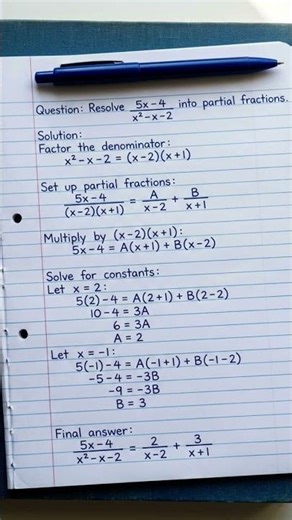 Question: Resolve (5x-4)/(x²-x-2) into partial fractions.
Solution:
Factor the denominator:
x²-x-2 = (x-2)(x+1)
Set up partial fractions:
(5x-4)/((x-2)(x+1)) = A/(x-2) + B/(x+1)
Multiply by (x-2)(x+1):
5x-4 = A(x+1) + B(x-2)
Solve for constants:
Let x = 2:
5(2)-4 = A(2+1) + B(2-2)
10-4 = 3A
6 = 3A
A = 2
Let x = -1:
5(-1)-4 = A(-1+1) + B(-1-2)
-5-4 = -3B
-9 = -3B
B = 3
Final answer:
(5x-4)/(x²-x-2) = 2/(x-2) + 3/(x+1)